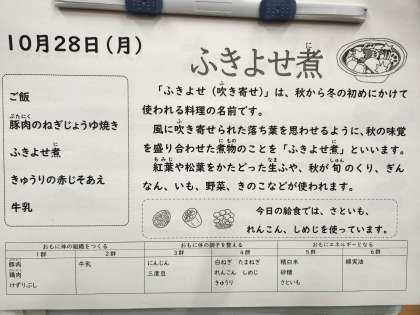 10月28日(月)
ふきよせ煮
に
ご飯
豚肉のねぎじょうゆ焼き
ぶたにく
ふきよせ煮
に
きゅうりの赤じそあえ
牛乳
「ふきよせ(吹き寄せ)」は、秋から冬の初めにかけて
使われる料理の名前です。
風に吹き寄せられた落ち葉を思わせるように、秋の味覚
を盛り合わせた煮物のことを「ふきよせ煮」といいます。
紅葉や松葉をかたどった生ふや、秋が旬のくり、ぎん
なん、いも、野菜、きのこなどが使われます。
今日の給食では、さといも、
れんこん、しめじを使っています。
おもに体の組織をつくる
おもに体の調子を整える
おもにエネルギーとなる
1群
2群
3群
4群
5群
6群
豚肉
鶏肉
けずりぶし
牛乳
にんじん
三度豆
白ねぎ たまねぎ
れんこん しめじ
きゅうり
精白米
砂糖
さといも
綿実油